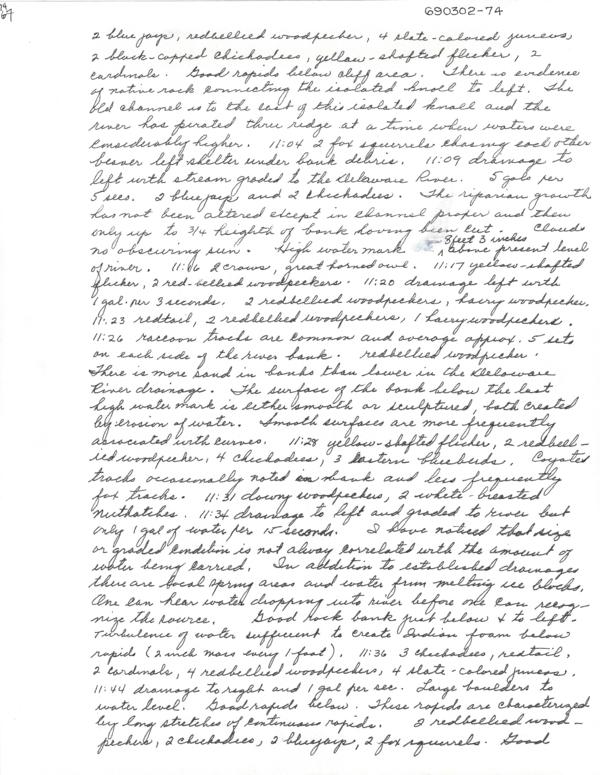 690302-74
67
2 blue jays, redbellied woodpecker, 4 slate-colored juncos,
2 black-capped chickadees, yellow-shafted flicker, 2
cardinals. Good rapids below cliff area. There is evidence
of native rock connecting the isolated knoll to left. The
old channel is to the east of this isolated knoll and the
river has pirated thru ridge at a time when waters were
considerably higher. 11:04 2 fox squirrels chasing each other
beaver left shelter under bank debris. 11:09 drainage to
left with stream graded to the Delaware River. 5 gals per
5 secs. 2 bluejays and 2 chickadees. The riparian growth
has not been altered except in channel proper and then
only up to 3/4 heighth of bank having been cut. Clouds
no obscuring sun. High water mark 8 feet 3 inches above present level
of river. 11:16 2 crows, great horned owl. 11:17 yellow-shafted
flicker, 2 red-bellied woodpeckers. 11:20 drainage left with
1 gal. per 3 seconds. 2 redbellied woodpeckers, hairy woodpecker.
11:23 redtail, 2 redbellied woodpeckers, 1 hairy woodpeckers.
11:26 raccoon tracks are common and average approx. 5 sets
on each side of the river bank. redbellied woodpecker.
There is more sand in banks than lower in the Delaware
River drainage. The surface of the bank below the last
high water mark is either smooth or sculptured, both created
by erosion of water. Smooth surfaces are more frequently
associated with curves. 11:28 yellow-shafted flicker, 2 redbell-
ied woodpecker, 4 chickadees, 3 Eastern bluebirds. Coyotes
tracks occasionally noted on bank and less frequently
fox tracks. 11:31 downy woodpeckers, 2 white-breasted
nuthatches. 11:34 drainage to left and graded to river but
only 1 gal of water per 15 seconds. I have noticed that size
or graded condition is not alway correlated with the amount of
water being carried. In addition to established drainages
there are local spring areas and water from melting ice blocks.
One can hear water dropping into river before one can recog-
nize the source. Good rock bank just below & to left.
Turbulence of water sufficient to create Indian foam below
rapids (2 inch mass every 1 foot). 11:36 3 chickadees, redtail,
2 cardinals, 4 redbellied woodpeckers, 4 slate-colored juncos.
11:44 drainage to right and 1 gal per sec. Large boulders to
water level. Good rapids below. These rapids are characterized
by long stretches of continuous rapids. 2 redbellied wood-
peckers, 2 chickadees, 2 bluejays, 2 fox squirrels. Good